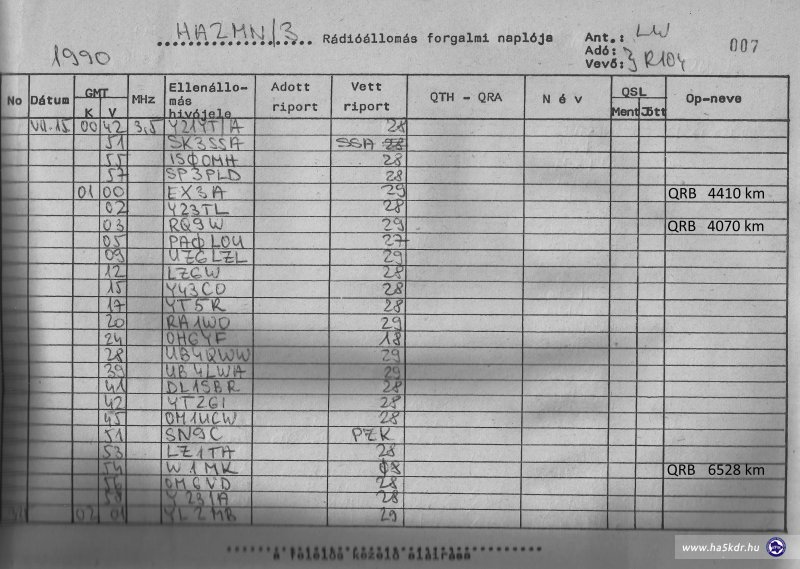 HA2MN/3 Rádióállomás forgalmi naplója Ant.: LW
1990 Adó: 007
Vevő: R104
No Dátum GMT MHz Ellenállo- Adott Vett QTH - QRA N é v QSL Op-neve
K V más riport riport Ment Jött
hívójele
VII.15 00 42 3,5 Y21YT/A 28
51 SK3SSA SSA 28
55 ISΦOMH 28
57 SP3PLD 28
01 00 EX3A 29 QRB 4410 km
02 Y23TL 28
03 RQ9W 29 QRB 4070 km
05 PAΦLOU 27
09 UZ6LZL 29
12 LZ6W 28
15 Y43CO 28
17 YT5R 28
20 RA1WO 29
24 OH6YF 18
28 UB4QWW 29
39 UB4LWA 29
41 DL1SBR 28
42 YT2GI 28
45 OM1UCW 28
51 SN9C PZK
53 LZ1TA 28
54 W1MK 08 QRB 6528 km
56 OM6VD 28
58 28
02 01 YL2MB 29
a felelős kezelő aláírása
www.ha5kdr.hu